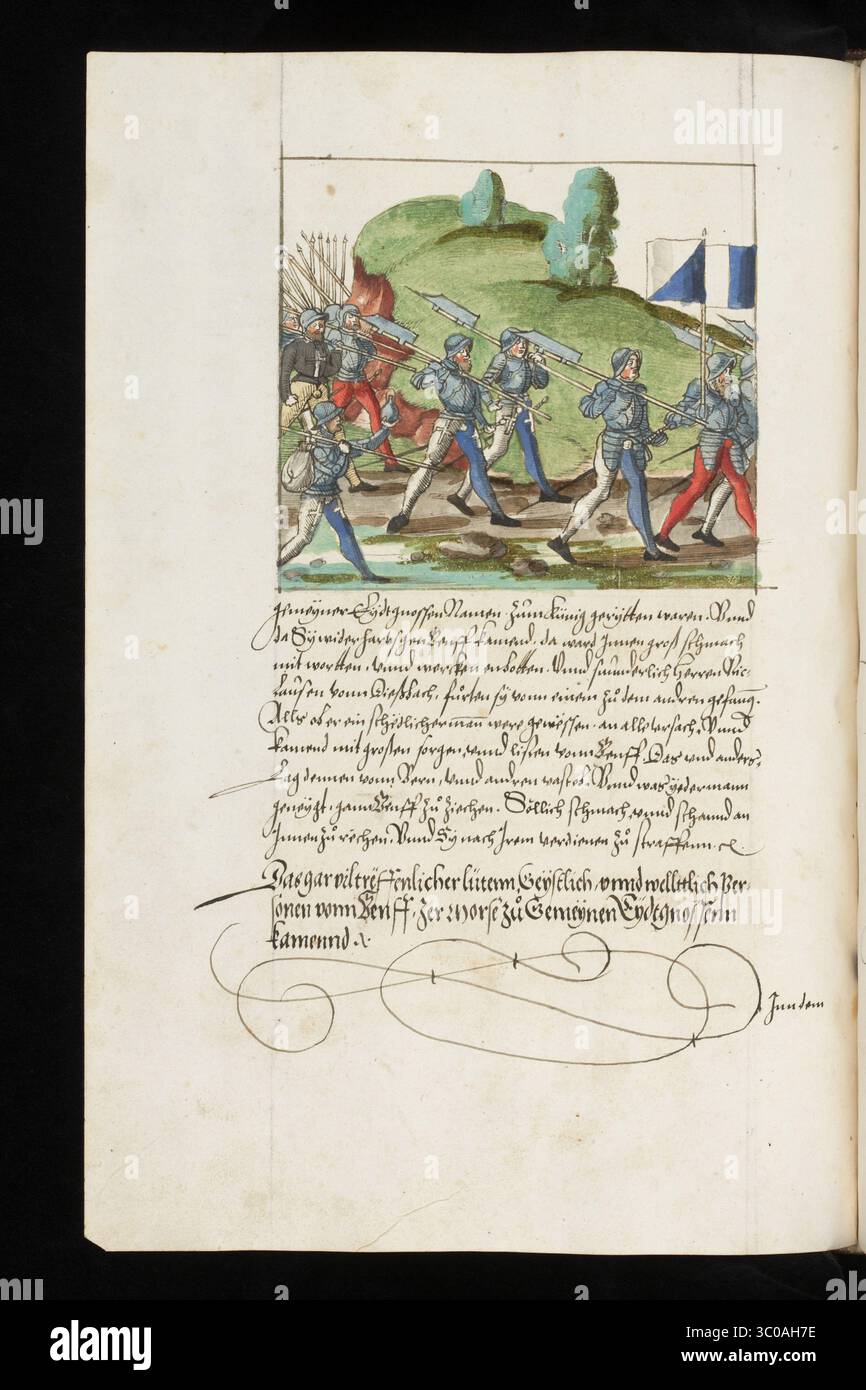 gemeyner Eydtgnossen Namen zum künig geritten waren. Vnnd
da Sy wider harh gen Genff kamend, da ward Innen groß schmach
mit wortten, vnnd wercken enbotten. Vnnd sunnderlich Herren Nic-
lausen vonn Dießbach, fürten sy vonn einem zu dem andren gefanng.
Alls ob er ein schedlicher mann were gewessen, an alle vrsach, Vnnd
kamend mit großen sorgen, vnnd listen vonn Genff. Das vnd anders,
Lag dennen vonn Bern, vnnd andren vast ob. Vnnd was yederman
geneygt, gann Genff zů ziechen. Söllich schmach, vnnd schannd an
Innen zů rechen. Vnnd Sy nach Irem verdienen zů straffenn.
Das gar vil treffenlicher lütenn, Geystlich, vnnd welltlich Per-
sonen vonn Genff, Zer Morse zů Gemeynen Eydtgnossenn
kamennd
Inn dem
alamy
a
Image ID: 3C0AH7E
www.alamy.com